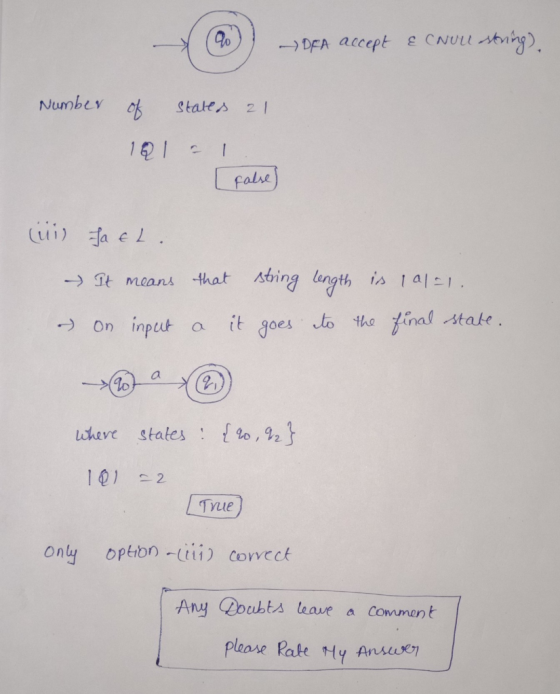 q0 → DFA accept ε (NULL string).
Number of states = 1
|Q| = 1
False
(iii) ∃a ∈ L.
→ It means that string length is |a|=1.
→ On input a it goes to the final state.
q0 a q1
where states : {q0, q2}
|Q| = 2
True
only option -(iii) correct
Any Doubts leave a comment
please Rate My Answer